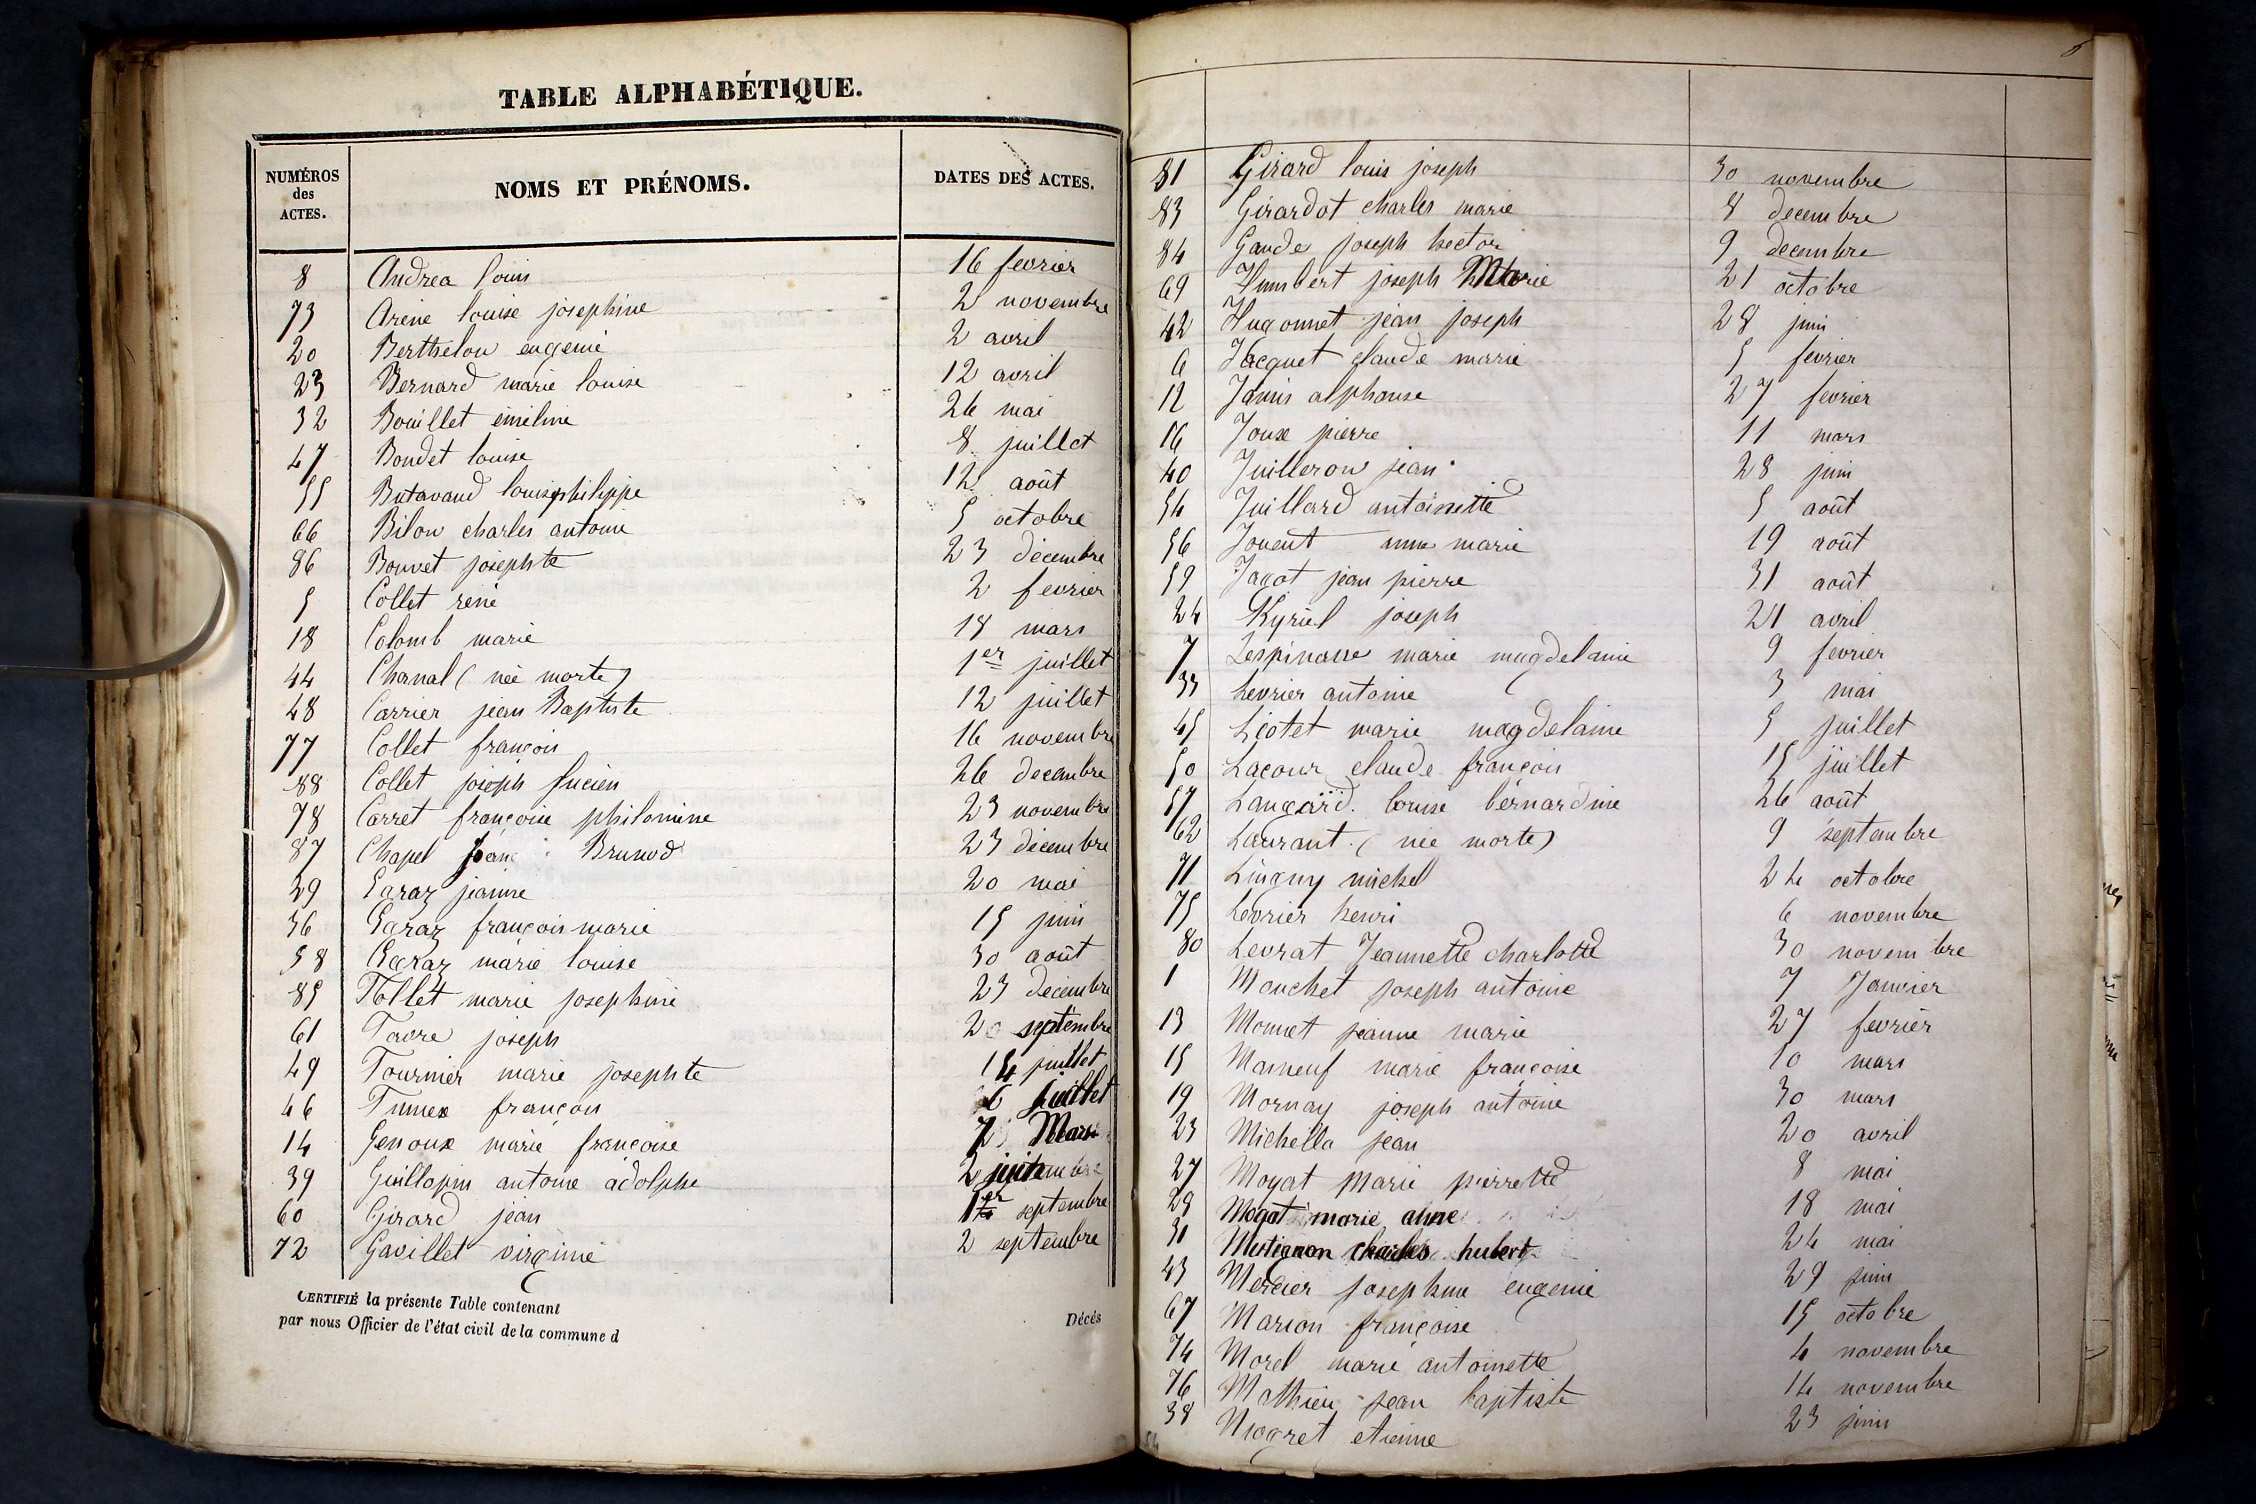 TABLE ALPHABÉTIQUE.
NUMÉROS des ACTES. NOMS ET PRÉNOMS. DATES DES ACTES.
8 Andrea louis 16 fevrier
73 Arène louise josephine 2 novembre
20 Berthelon eugenie 2 avril
23 Bernard marie louise 12 avril
32 Bouillet émeline 26 mai
47 Bondet louise 8 juillet
55 Butavand louis philippe 12 août
66 Bilon charles antoine 5 octobre
86 Bouvet josephte 23 décembre
5 Collet rené 2 fevrier
18 Colomb marie 18 mars
44 Chanal (née morte) 1er juillet
48 Carrier jean Baptiste 12 juillet
77 Collet françois 16 novembre
88 Collet joseph lucien 26 decembre
78 Carret françoise philomine 23 novembre
87 Chapel Brunod 23 décembre
29 Egraz jeanne 20 mai
36 Egraz françois marie 15 juin
58 marie louise 30 août
85 Follet marie josephine 23 decembre
61 Favre joseph 2 septembre
49 Fournier marie josephte 14 juillet
46 Fumex françois 6 juillet
14 Genoux marie françoise 7 Mars
39 Guillopin antoine adolphe 2
60 Girard jean 1er septembre
72 Gavillet virginie 2 septembre
CERTIFIÉ la présente Table contenant Décès
par nous Officier de l'état civil de la commune d
81 Girard louis joseph 30 novembre
83 Girardot charles marie 8 decembre
84 Gaude joseph hector 9 decembre
69 Humbert joseph Marie 21 octobre
42 Hugonnet jean joseph 28 juin
6 Jacquet claude marie 5 fevrier
12 Janin alphonse 27 fevrier
16 Joux pierre 11 mars
40 Juilleron jean 28 juin
54 Juillard antoinette 5 août
56 Jouent anne marie 19 août
59 Jagot jean pierre 31 août
24 Kyriel joseph 21 avril
7 Lespinasse marie magdelaine 9 fevrier
33 Levrier antoine 3 mai
45 Ligtet marie magdelaine 5 juillet
50 Lacour claude françois 15 juillet
57 louise bérnardine 26 août
62 Laurant (née morte) 9 septembre
71 Lingny michel 24 octobre
75 Levrier henri 6 novembre
80 Levrat Jeannette charlotte 30 novembre
1 Mouchet joseph antoine 7 Janvier
13 Monnet jeanne marie 27 fevrier
15 Manneuf marie françoise 10 mars
19 Mornay joseph antoine 30 mars
23 Michella jean 20 avril
27 Moyat Marie pierrette 8 mai
28 Mogat marie anne 18 mai
31 Mestignon charles hubert 24 mai
43 Mercier josephine eugenie 29 juin
67 Marion françoise 15 octobre
74 Morel marie antoinette 4 novembre
76 Mathieu jean baptiste 14 novembre
38 Mogret etienne 23 juin